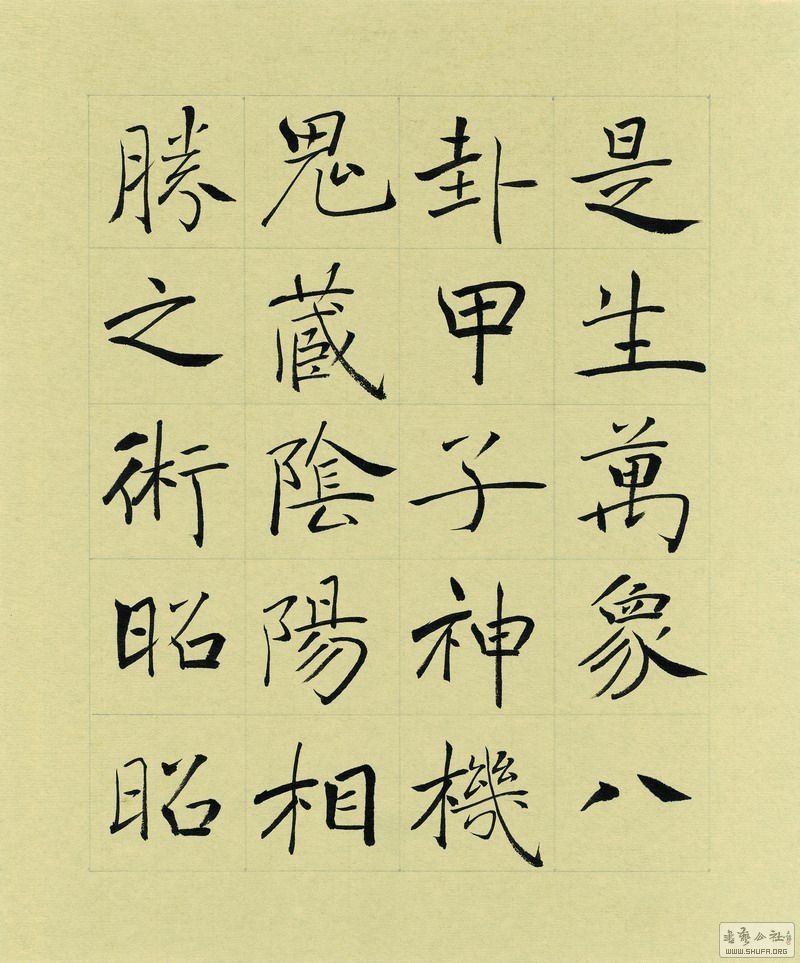 是生萬象八
卦甲子神機
鬼藏陰陽相
勝之術昭昭
書藝公社
WWW.SHUFA.ORG